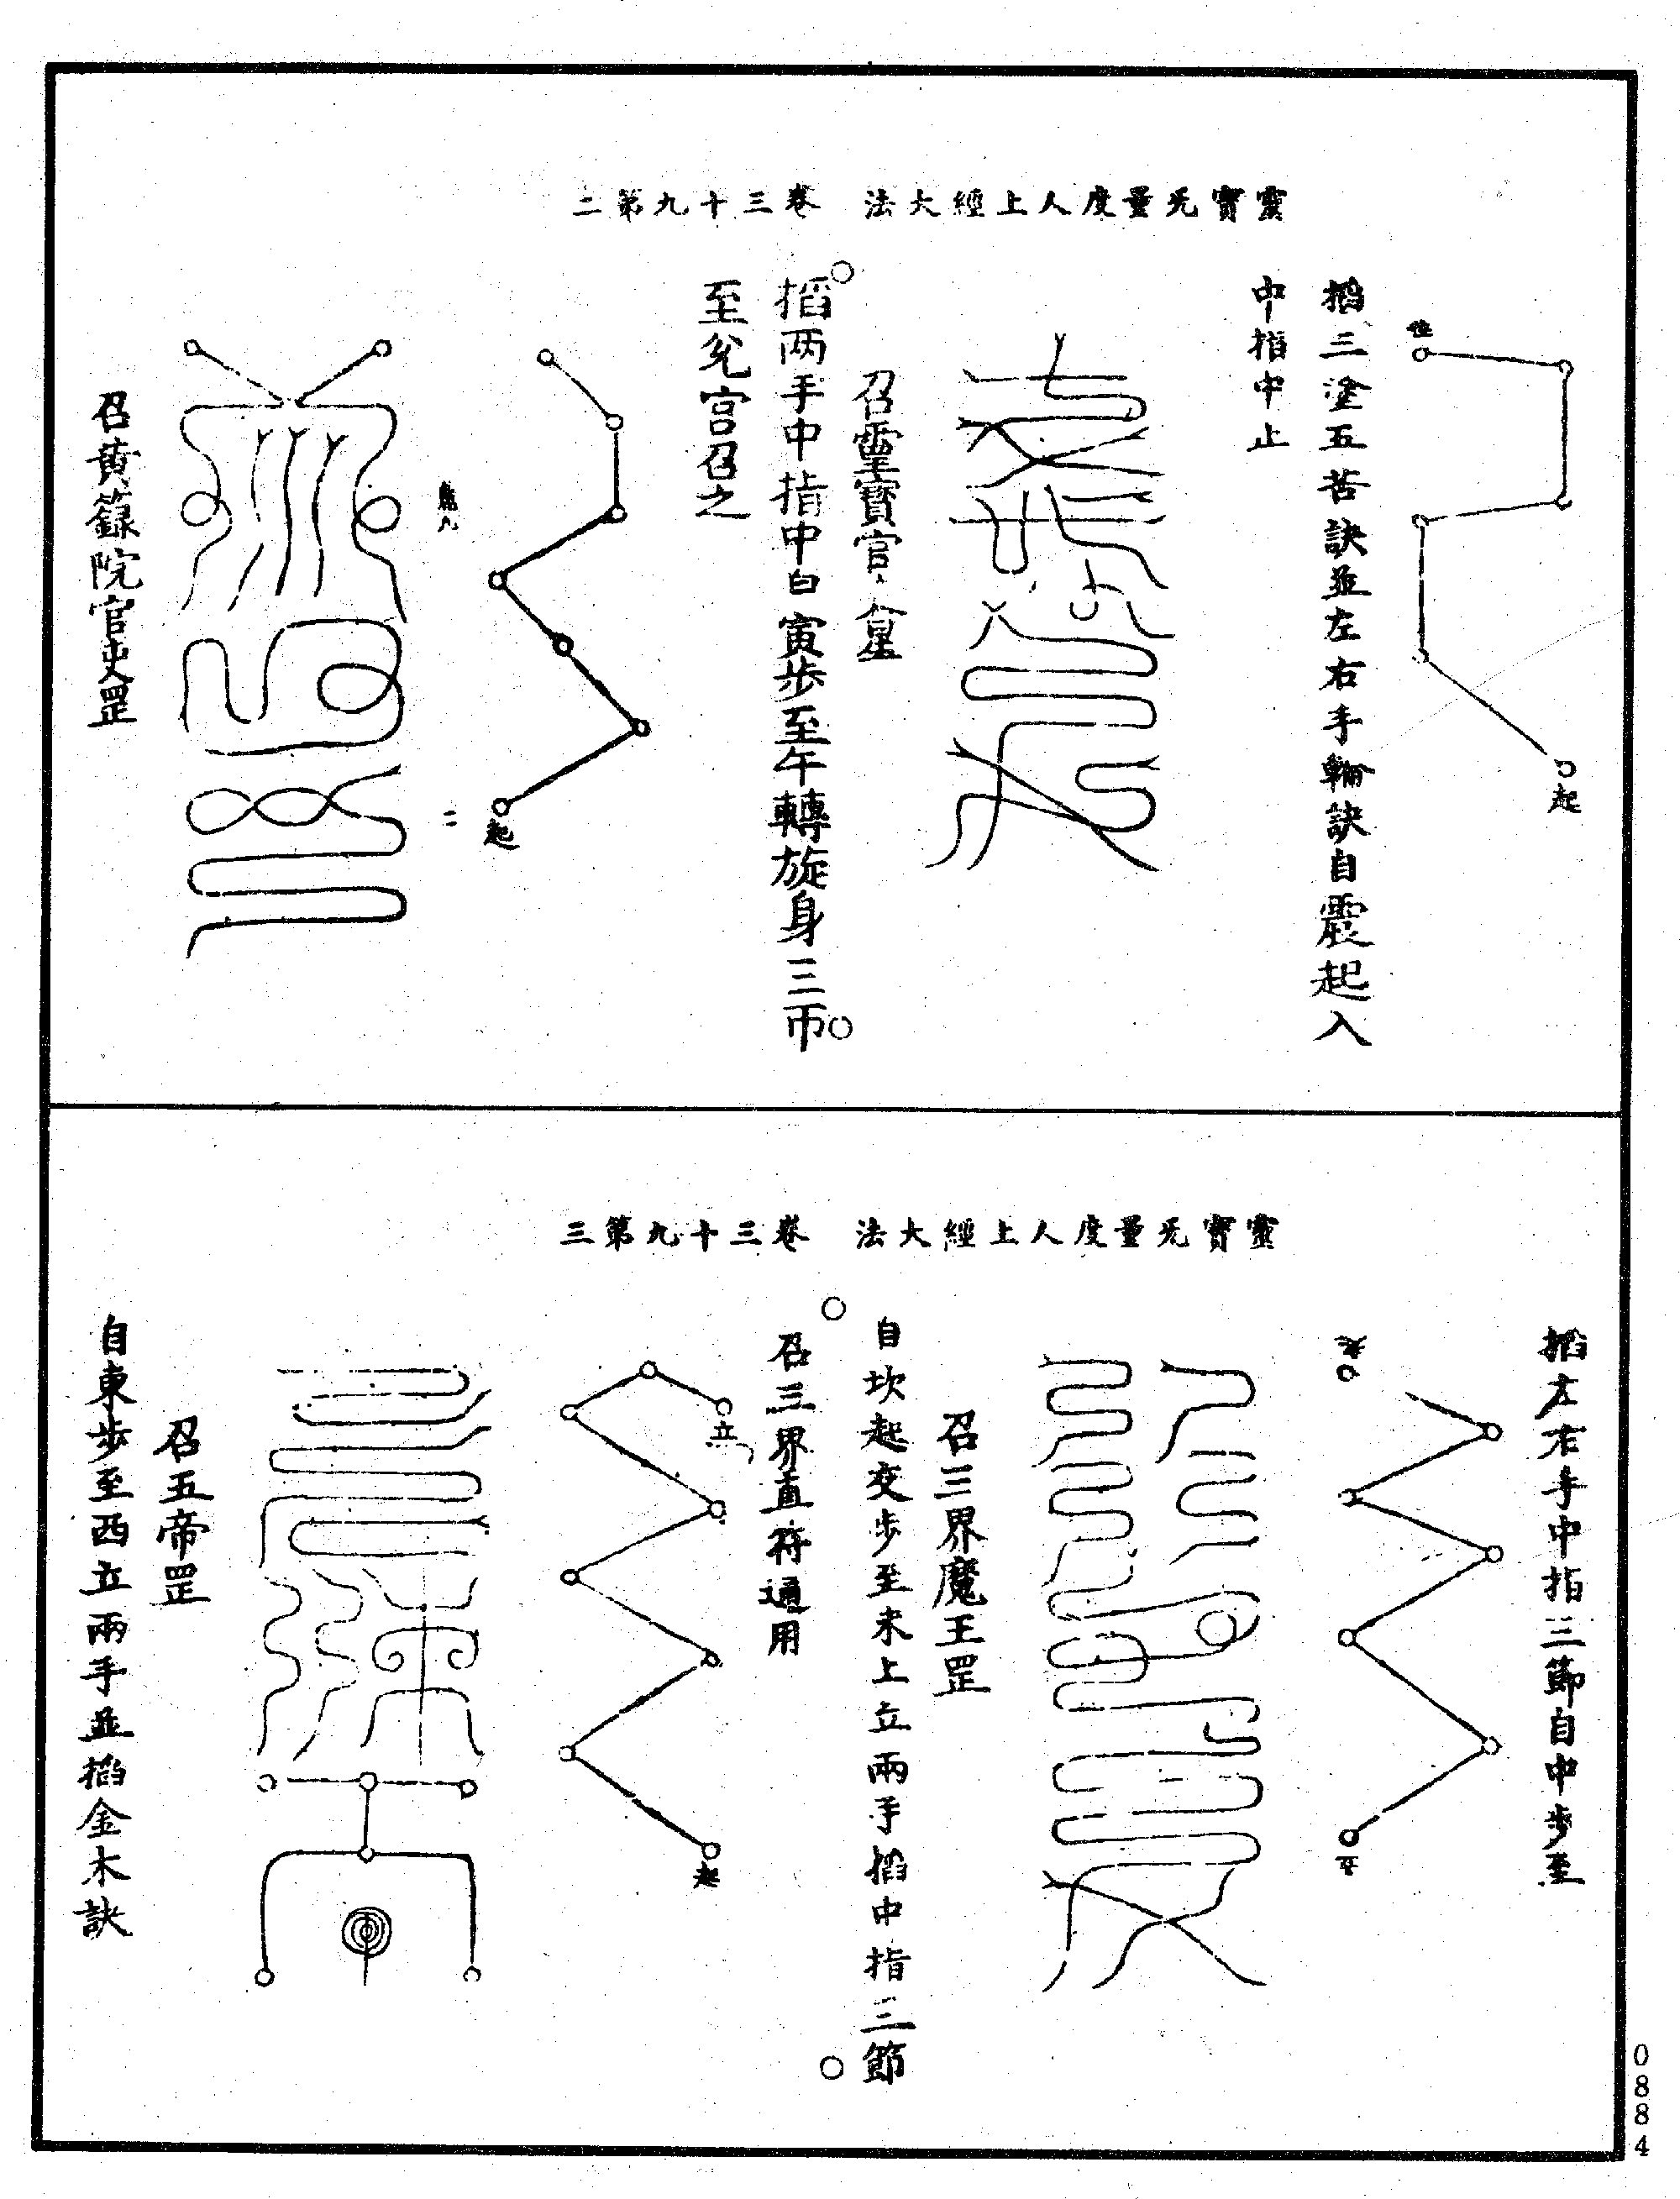 靈寶无量度人上經大法　卷三十九第二
起
掐三塗五苦訣並左右手輪訣自震起入
中指中止
召靈寶官㒰
掐两手中指中自寅步至午轉旋身三帀
至兊宫召之
起
二
召黄籙院官吏罡
靈寶无量度人上經大法　卷三十九第三
掐左右手中指三節自中步至
召三界魔王罡
自坎起交步至未上立兩手掐中指三節
召三界直符通用
立
起
召五帝罡
自東步至西立兩手並掐金木訣
0884